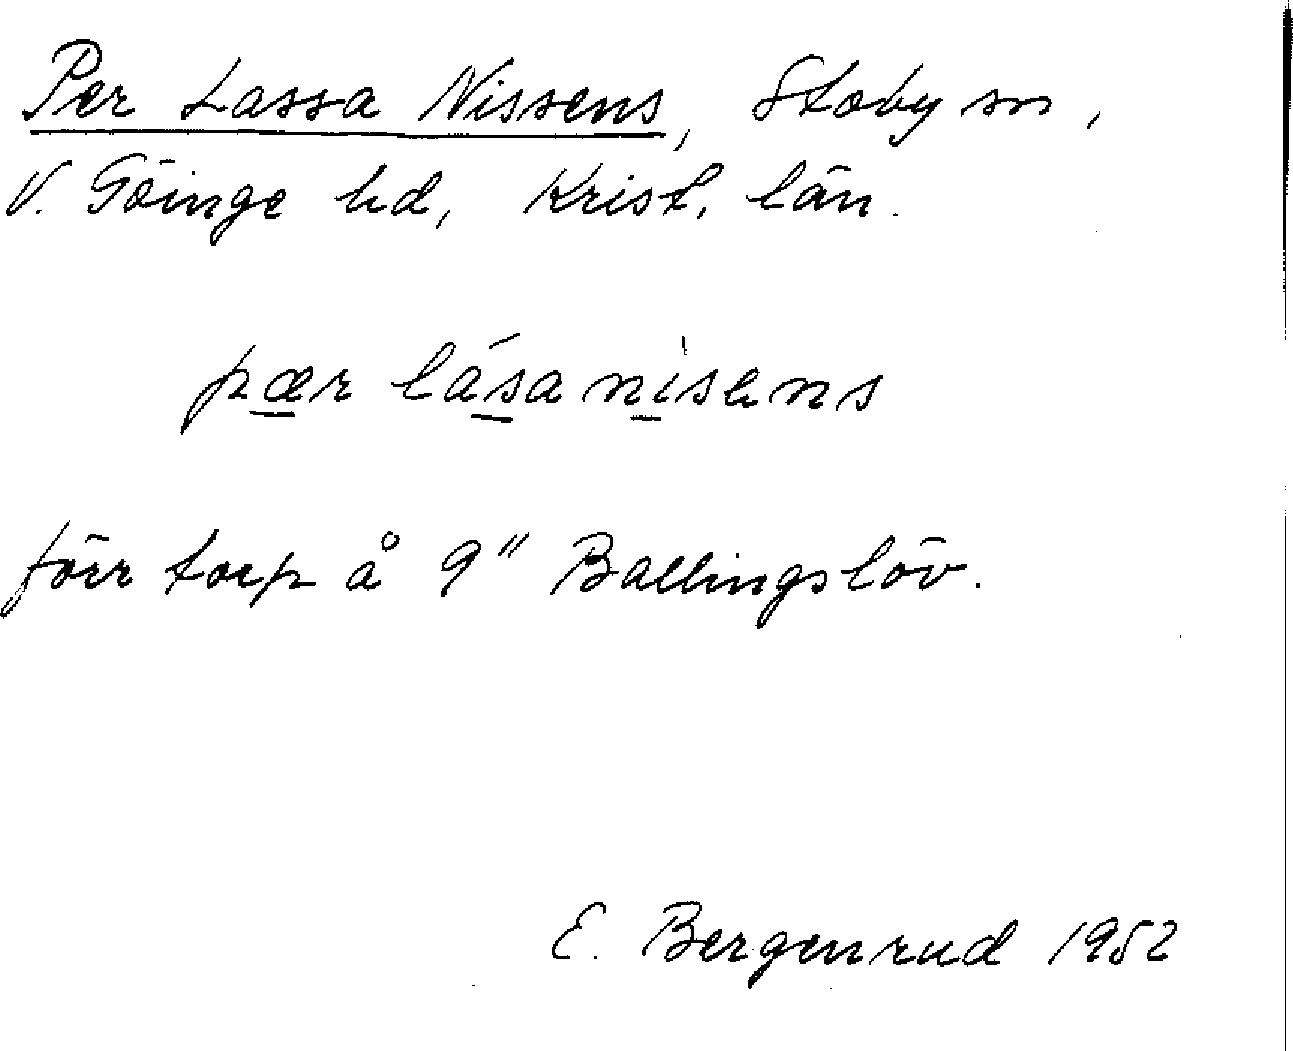 Per Lassa Nissens, Stoby sn,
V. Göinge hd, Krist. län.
pær lása nisens
förr torp å 9" Ballingslöv.
E. Bergenrud 1952